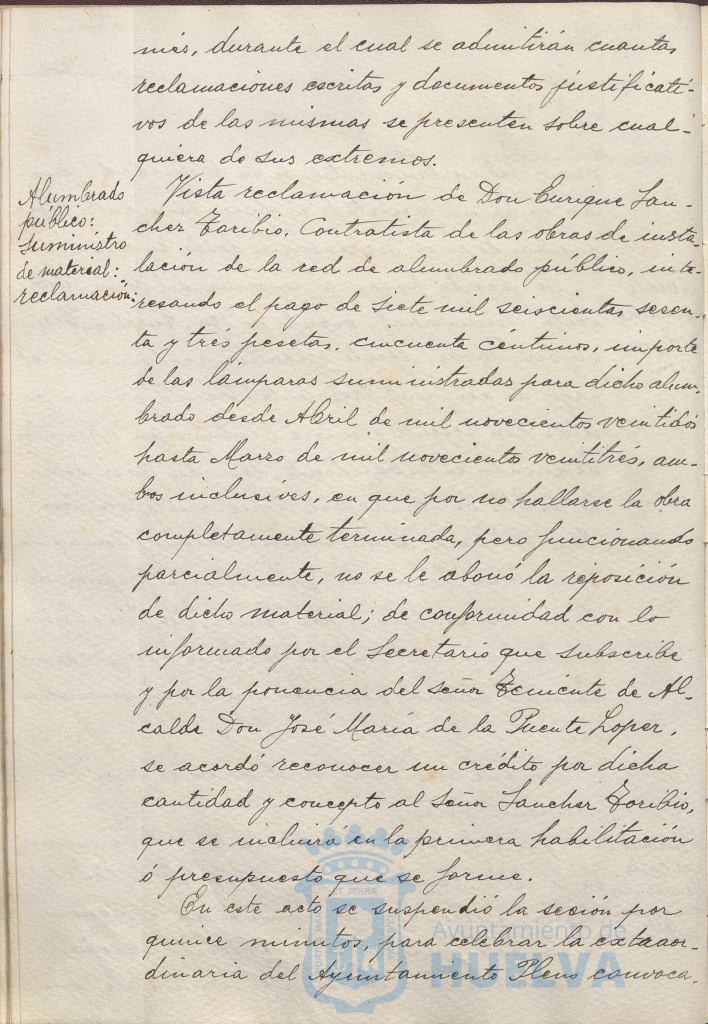 més, durante el cual se admitirán cuantas
reclamaciones escritas y documentos justificati-
vos de las mismas se presenten sobre cual-
quiera de sus extremos.
Alumbrado
público:
suministro
de material:
reclamación:
Vista reclamación de Don Enrique San-
chez Toribio. Contratista de las obras de insta-
lación de la red de alumbrado público, inte-
resando el pago de siete mil seiscientas sesen-
ta y trés pesetas, cincuenta céntimos, importe
de las lámparas suministradas para dicho alum-
brado desde Abril de mil novecientos veintidós
hasta Marzo de mil novecientos veintitrés, am-
bos inclusives, en que por no hallarse la obra
completamente terminada, pero funcionando
parcialmente, no se le abonó la reposición
de dicho material; de conformidad con lo
informado por el Secretario que subscribe
y por la ponencia del señor Teniente de Al-
calde Don José María de la Puente Lopez,
se acordó reconocer un crédito por dicha
cantidad y concepto al señor Sanchez Toribio,
que se incluirá en la primera habilitación
ó presupuesto que se forme.
En este acto se suspendió la sesión por
quince minutos, para celebrar la extraor-
dinaria del Ayuntamiento Pleno convoca-
Ayuntamiento de
HUELVA